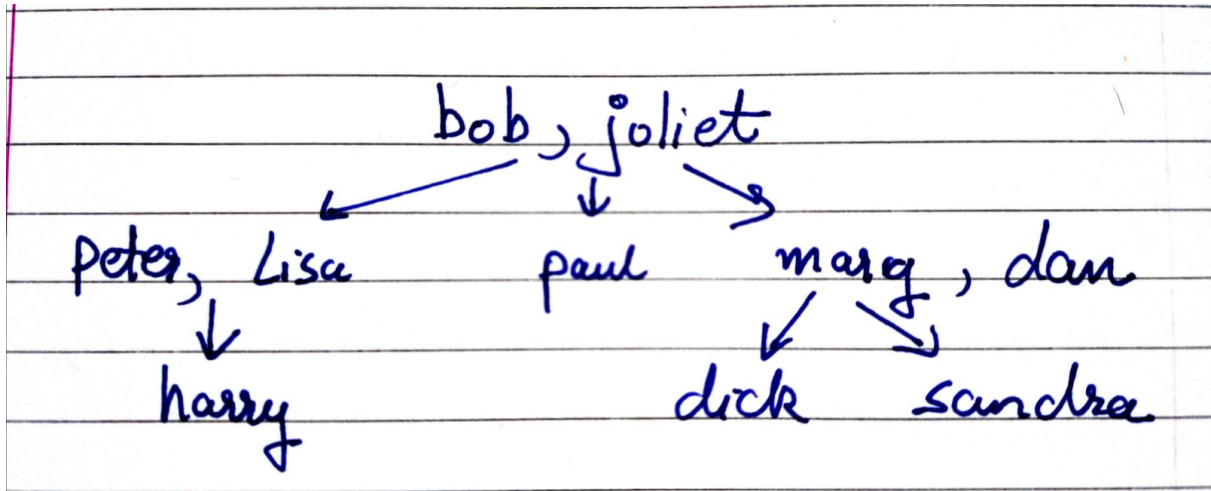 bob, joliet
peter, Lisa paul marg, dan
harry dick sandra